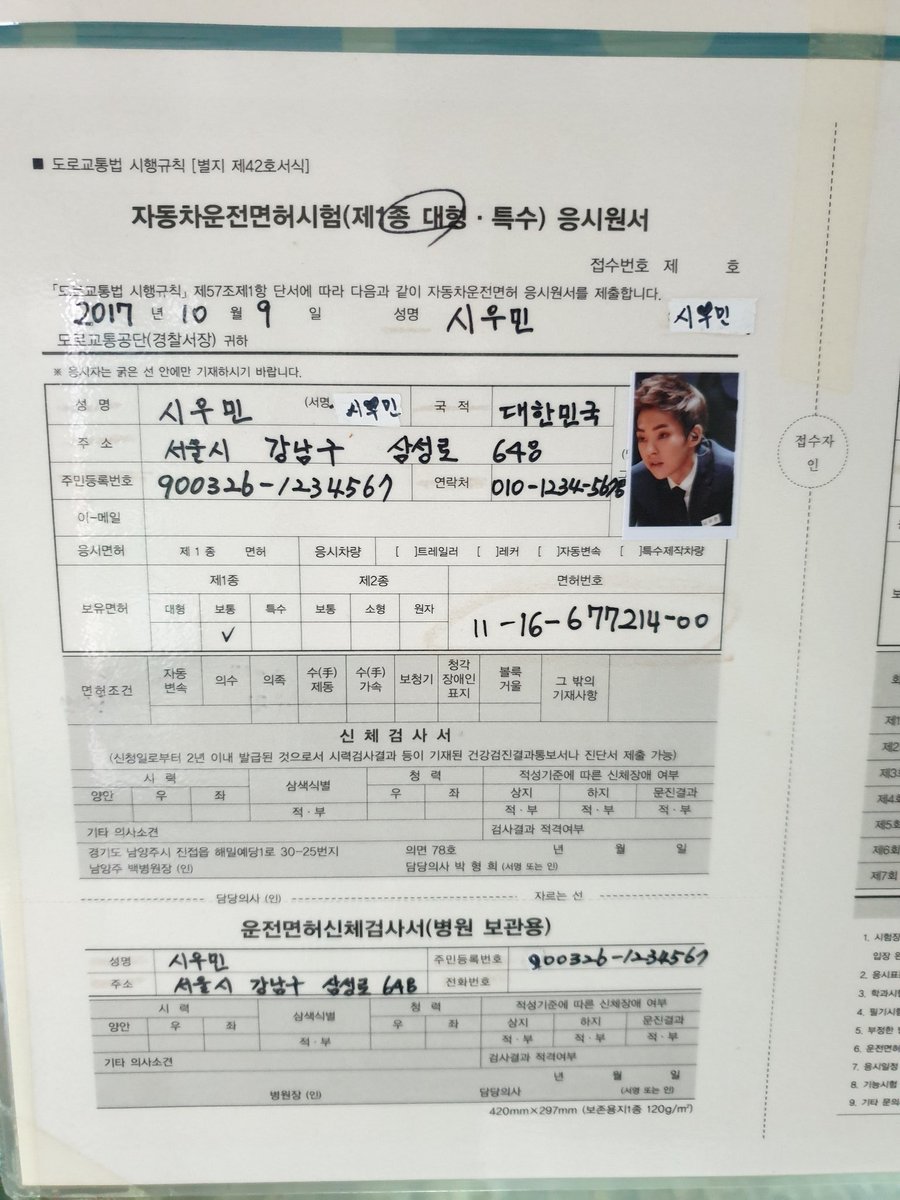 ■ 도로교통법 시행규칙 [별지 제42호서식]
자동차운전면허시험(제1종 대형 · 특수) 응시원서
접수번호 제 호
「도로교통법 시행규칙」 제57조제1항 단서에 따라 다음과 같이 자동차운전면허 응시원서를 제출합니다.
2017 년 10 월 9 일 성명 시우민 시우민
도로교통공단(경찰서장) 귀하
※ 응시자는 굵은 선 안에만 기재하시기 바랍니다.
성 명 시우민 (서명 시우민 국 적 대한민국
주 소 서울시 강남구 삼성로 648
주민등록번호 900326-1234567 연락처 010-1234-5678
이-메일
응시면허 제 1 종 면허 응시차량 [ ]트레일러 [ ]레커 [ ]자동변속 [ ]특수제작차량
제1종 제2종 면허번호
보유면허 대형 보통 특수 보통 소형 원자
✓ 11-16-677214-00
면허조건 자동변속 의수 의족 수(手)제동 수(手)가속 보청기 청각장애인표지 볼록거울 그 밖의 기재사항
신 체 검 사 서
(신청일로부터 2년 이내 발급된 것으로서 시력검사결과 등이 기재된 건강검진결과통보서나 진단서 제출 가능)
시 력 삼색식별 청 력 적성기준에 따른 신체장애 여부
양안 우 좌 우 좌 상지 하지 문진결과
적 · 부 적 · 부 적 · 부 적 · 부
기타 의사소견 검사결과 적격여부
경기도 남양주시 진접읍 해밀예당1로 30-25번지 의면 78호 년 월 일
남양주 백병원장 (인) 담당의사 박 형 희 (서명 또는 인)
담당의사 (인) 자르는 선
운전면허신체검사서(병원 보관용)
성명 시우민 주민등록번호 900326-1234567
주소 서울시 강남구 삼성로 648 전화번호
시 력 삼색식별 청 력 적성기준에 따른 신체장애 여부
양안 우 좌 우 좌 상지 하지 문진결과
적 · 부 적 · 부 적 · 부 적 · 부
기타 의사소견 검사결과 적격여부
년 월 일
병원장 (인) 담당의사 (서명 또는 인)
420mm×297mm (보존용지1종 120g/㎡)
접수자
인
제1회
제2회
제3회
제4회
제5회
제6회
제7회
1. 시험장
입장
2. 응시표
3. 학과시험
4. 필기시험
5. 부정한
6. 운전면허
7. 응시일정
8. 기능시험
9. 기타 문의